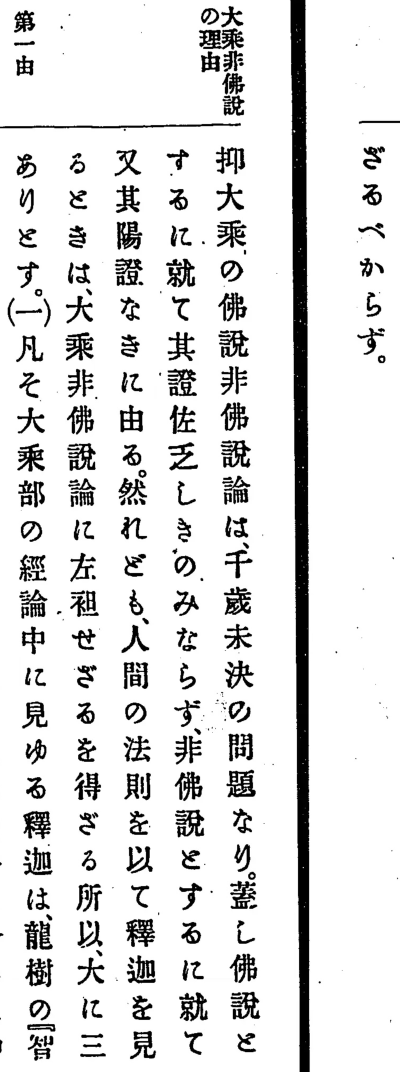 ざるべからず。
大乘非佛説
の理由
抑大乘の佛説非佛説論は、千歳未決の問題なり。蓋し佛説と
するに就て其證佐乏しきのみならず、非佛説とするに就て
又其陽證なきに由る。然れども、人間の法則を以て釋迦を見
るときは、大乘非佛説論に左袒せざるを得ざる所以、大に三
第一由
ありとす。(一)凡そ大乘部の經論中に見ゆる釋迦は、龍樹の『智